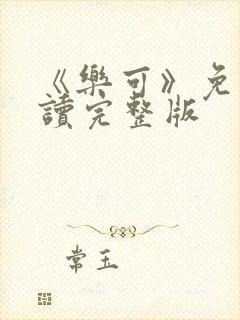 《樂可》免
讀完整版
常玉